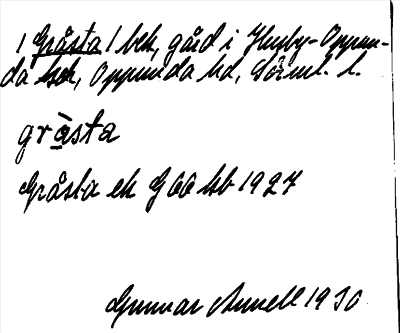 1 Gråsta 1 bek, gård i Husby-Oppun-
da sck, Oppunda hd, Sörml. l.
gràsta
Gråsta ek G 66 hb 1927
Gunnar Annell 1930